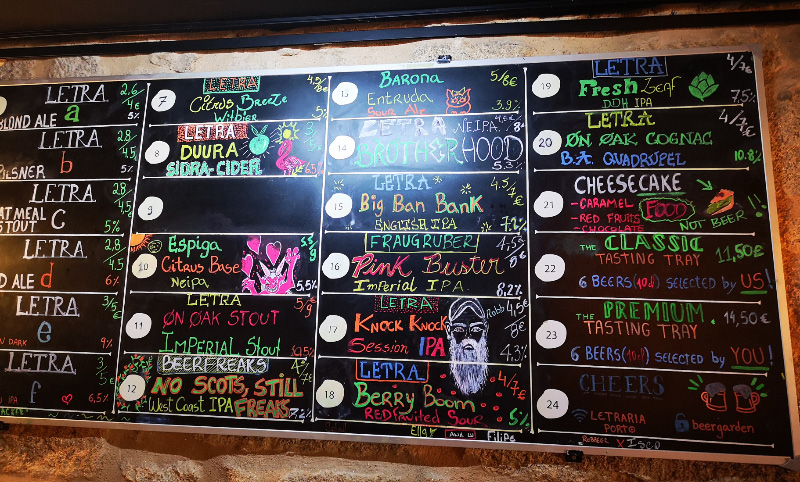 LETRA 2,6
4€
BLOND ALE a 5%
LETRA 2.8
4.5
PILSNER b 5%
LETRA 2.8
4,5
STOUT c 5%
LETRA 2,8
4.5
ALE d 6%
LETRA 3/5
DARK e 9%
LETRA 3
5
IPA f 6,5%
7 LETRA
Citrus Breeze
Witbier 5%
8 LETRA
DUURA
SIDRA-CIDER 6.5
9
10 Espiga
Citrus Base
Neipa 5.5%
11 LETRA
ØN ØAK STOUT
IMPERIAL Stout 10.5%
12 BEERFREAKS
NO SCOTS, STILL
West Coast IPA FREAKS
13 BARONA 5/8€
Entruda
Sour Ale 3.9%
14 LETRA NEIPA
BROTHERHOOD
5.3%
15 LETRA 4.5/7€
Big Ban BanK
ENGLISH IPA 7.2%
16 FRAUGRUBER 4,5
Pink Buster
Imperial IPA 8,2%
17 LETRA Robb 4,5€
KNOCK KNOCK 8€
Session IPA 4.3%
18 LETRA 4/7€
BERRY BOOM
RED Fruited Sour 5%
19 LETRA 4/7€
Fresh Leaf
DDH IPA 7,5%
20 LETRA 4/7€
ØN ØAK COGNAC
B.A. QUADRUPEL 10.8%
21 CHEESECAKE
-CARAMEL FOOD
-RED FRUITS NOT BEER!!
-CHOCOLATE
22 THE CLASSIC 11,50€
TASTING TRAY
6 BEERS (10cl) SELECTED by US!
23 THE PREMIUM 14,50€
TASTING TRAY
6 BEERS (10cl) SELECTED by YOU!
24 CHEERS
LETRARIA beergarden
PORTO
Filipe